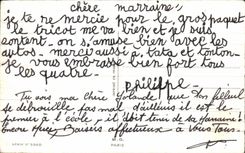 chère marraine,
je te remercie pour le gros paquet
le tricot me va bien et je suis
content. on s'amuse bien avec les
autos. merci aussi à tata et tonton.
je vous embrasse bien fort tous
les quatre.
philippe
Tu vois ma chère Yolande que ton filleul
se débrouille pas mal d'ailleurs il est le
premier à l'école, il doit tenir de sa marraine!
Encore gros Baisers affectueux à vous Tous.
M.D.
PARIS